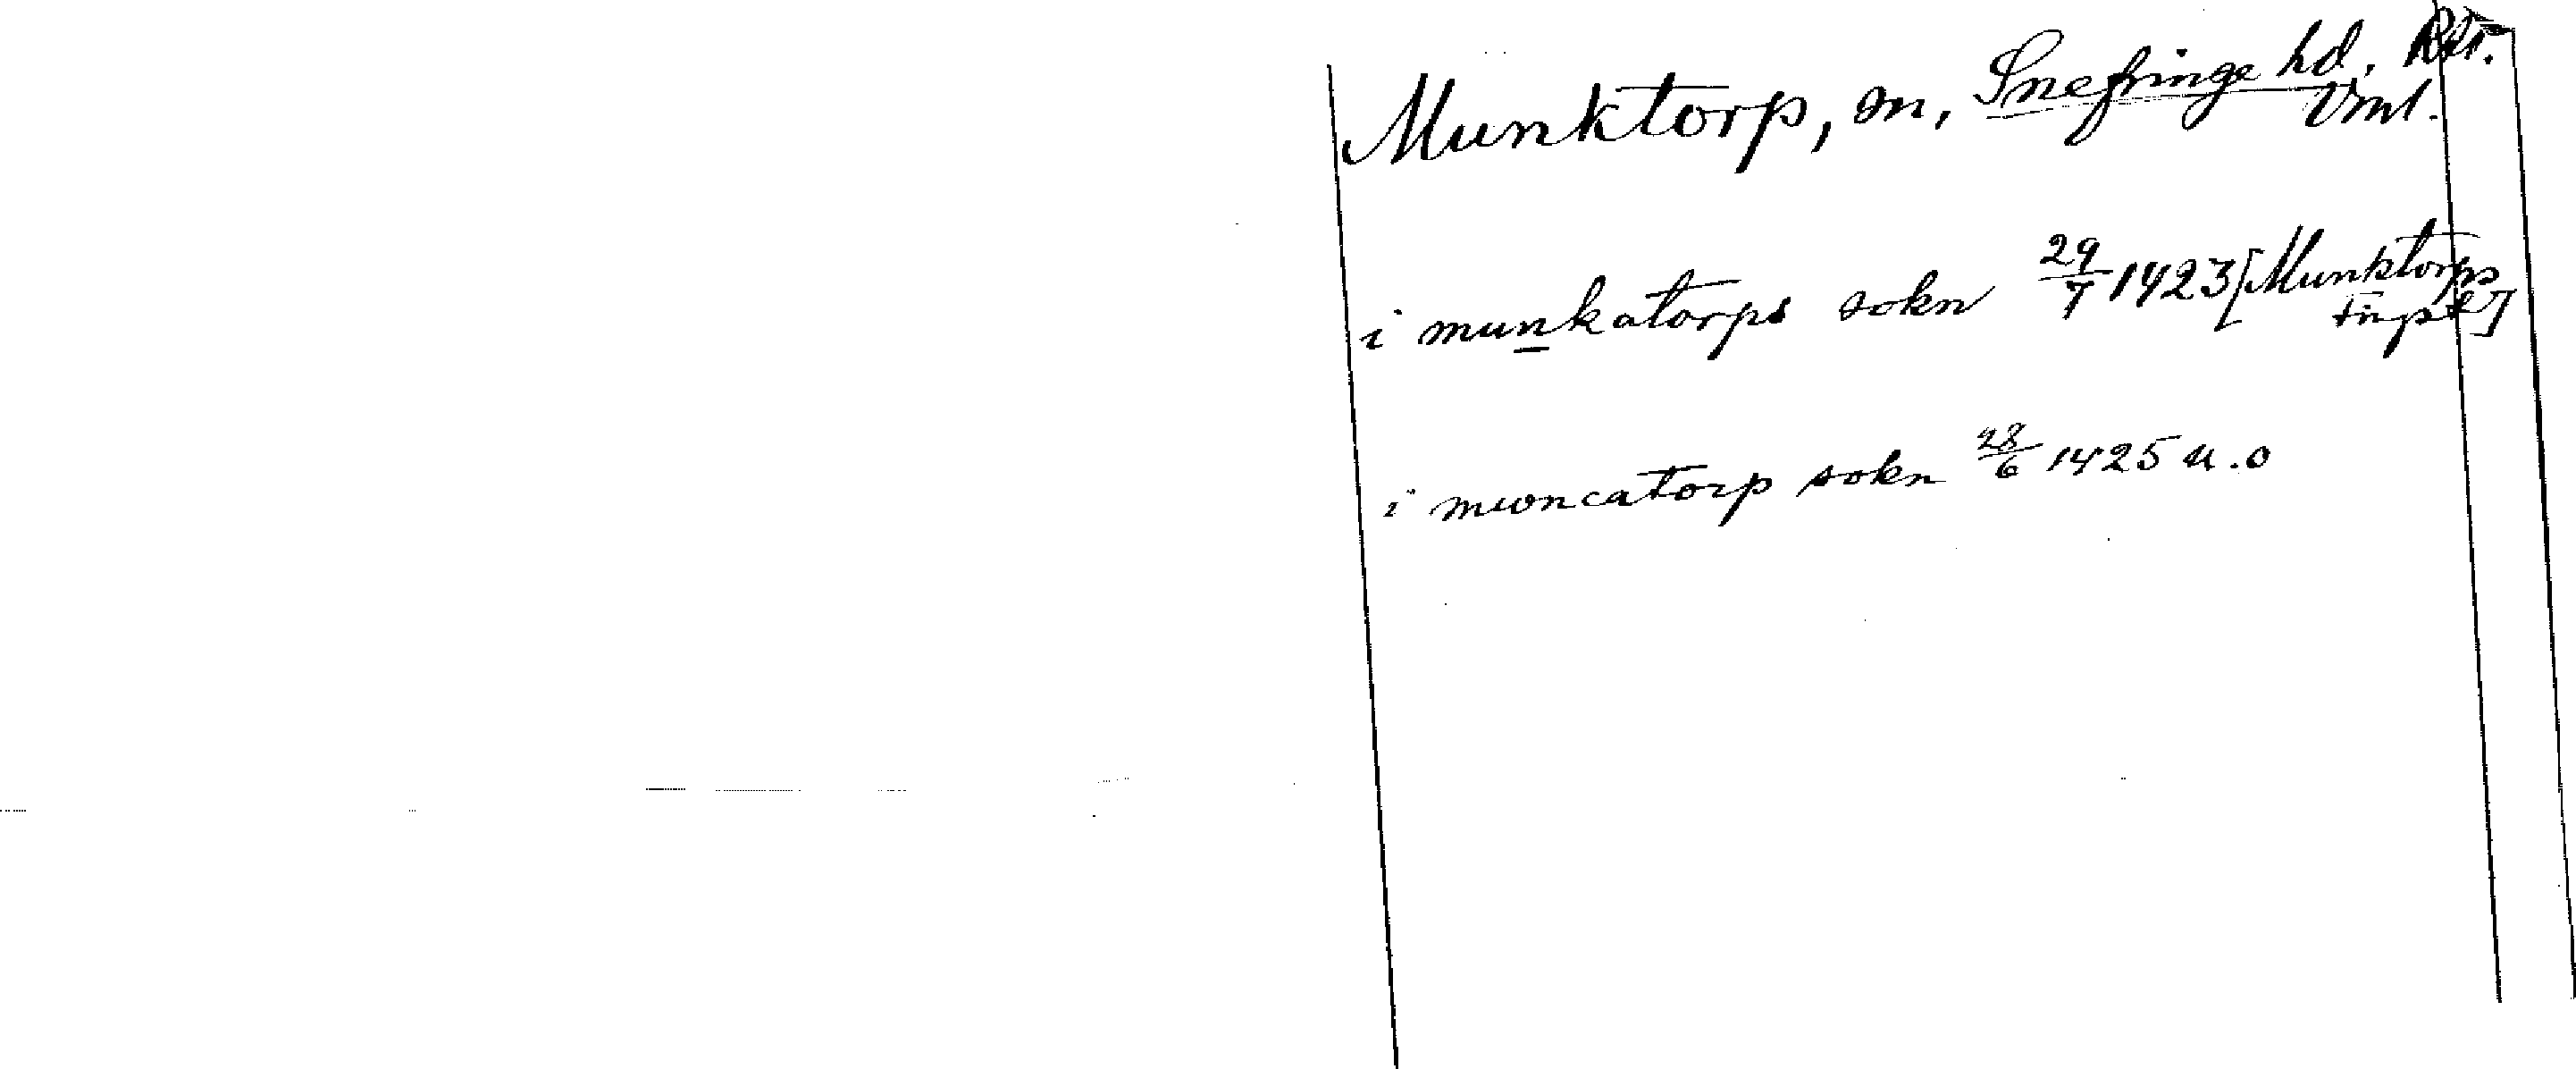 Munktorp, sn, Snefringe hd, Vml.
i munkatorps sokn 29/7 1423 [Munktorps
tingst]
i muoncatorp sokn 28/6 1425 u.o